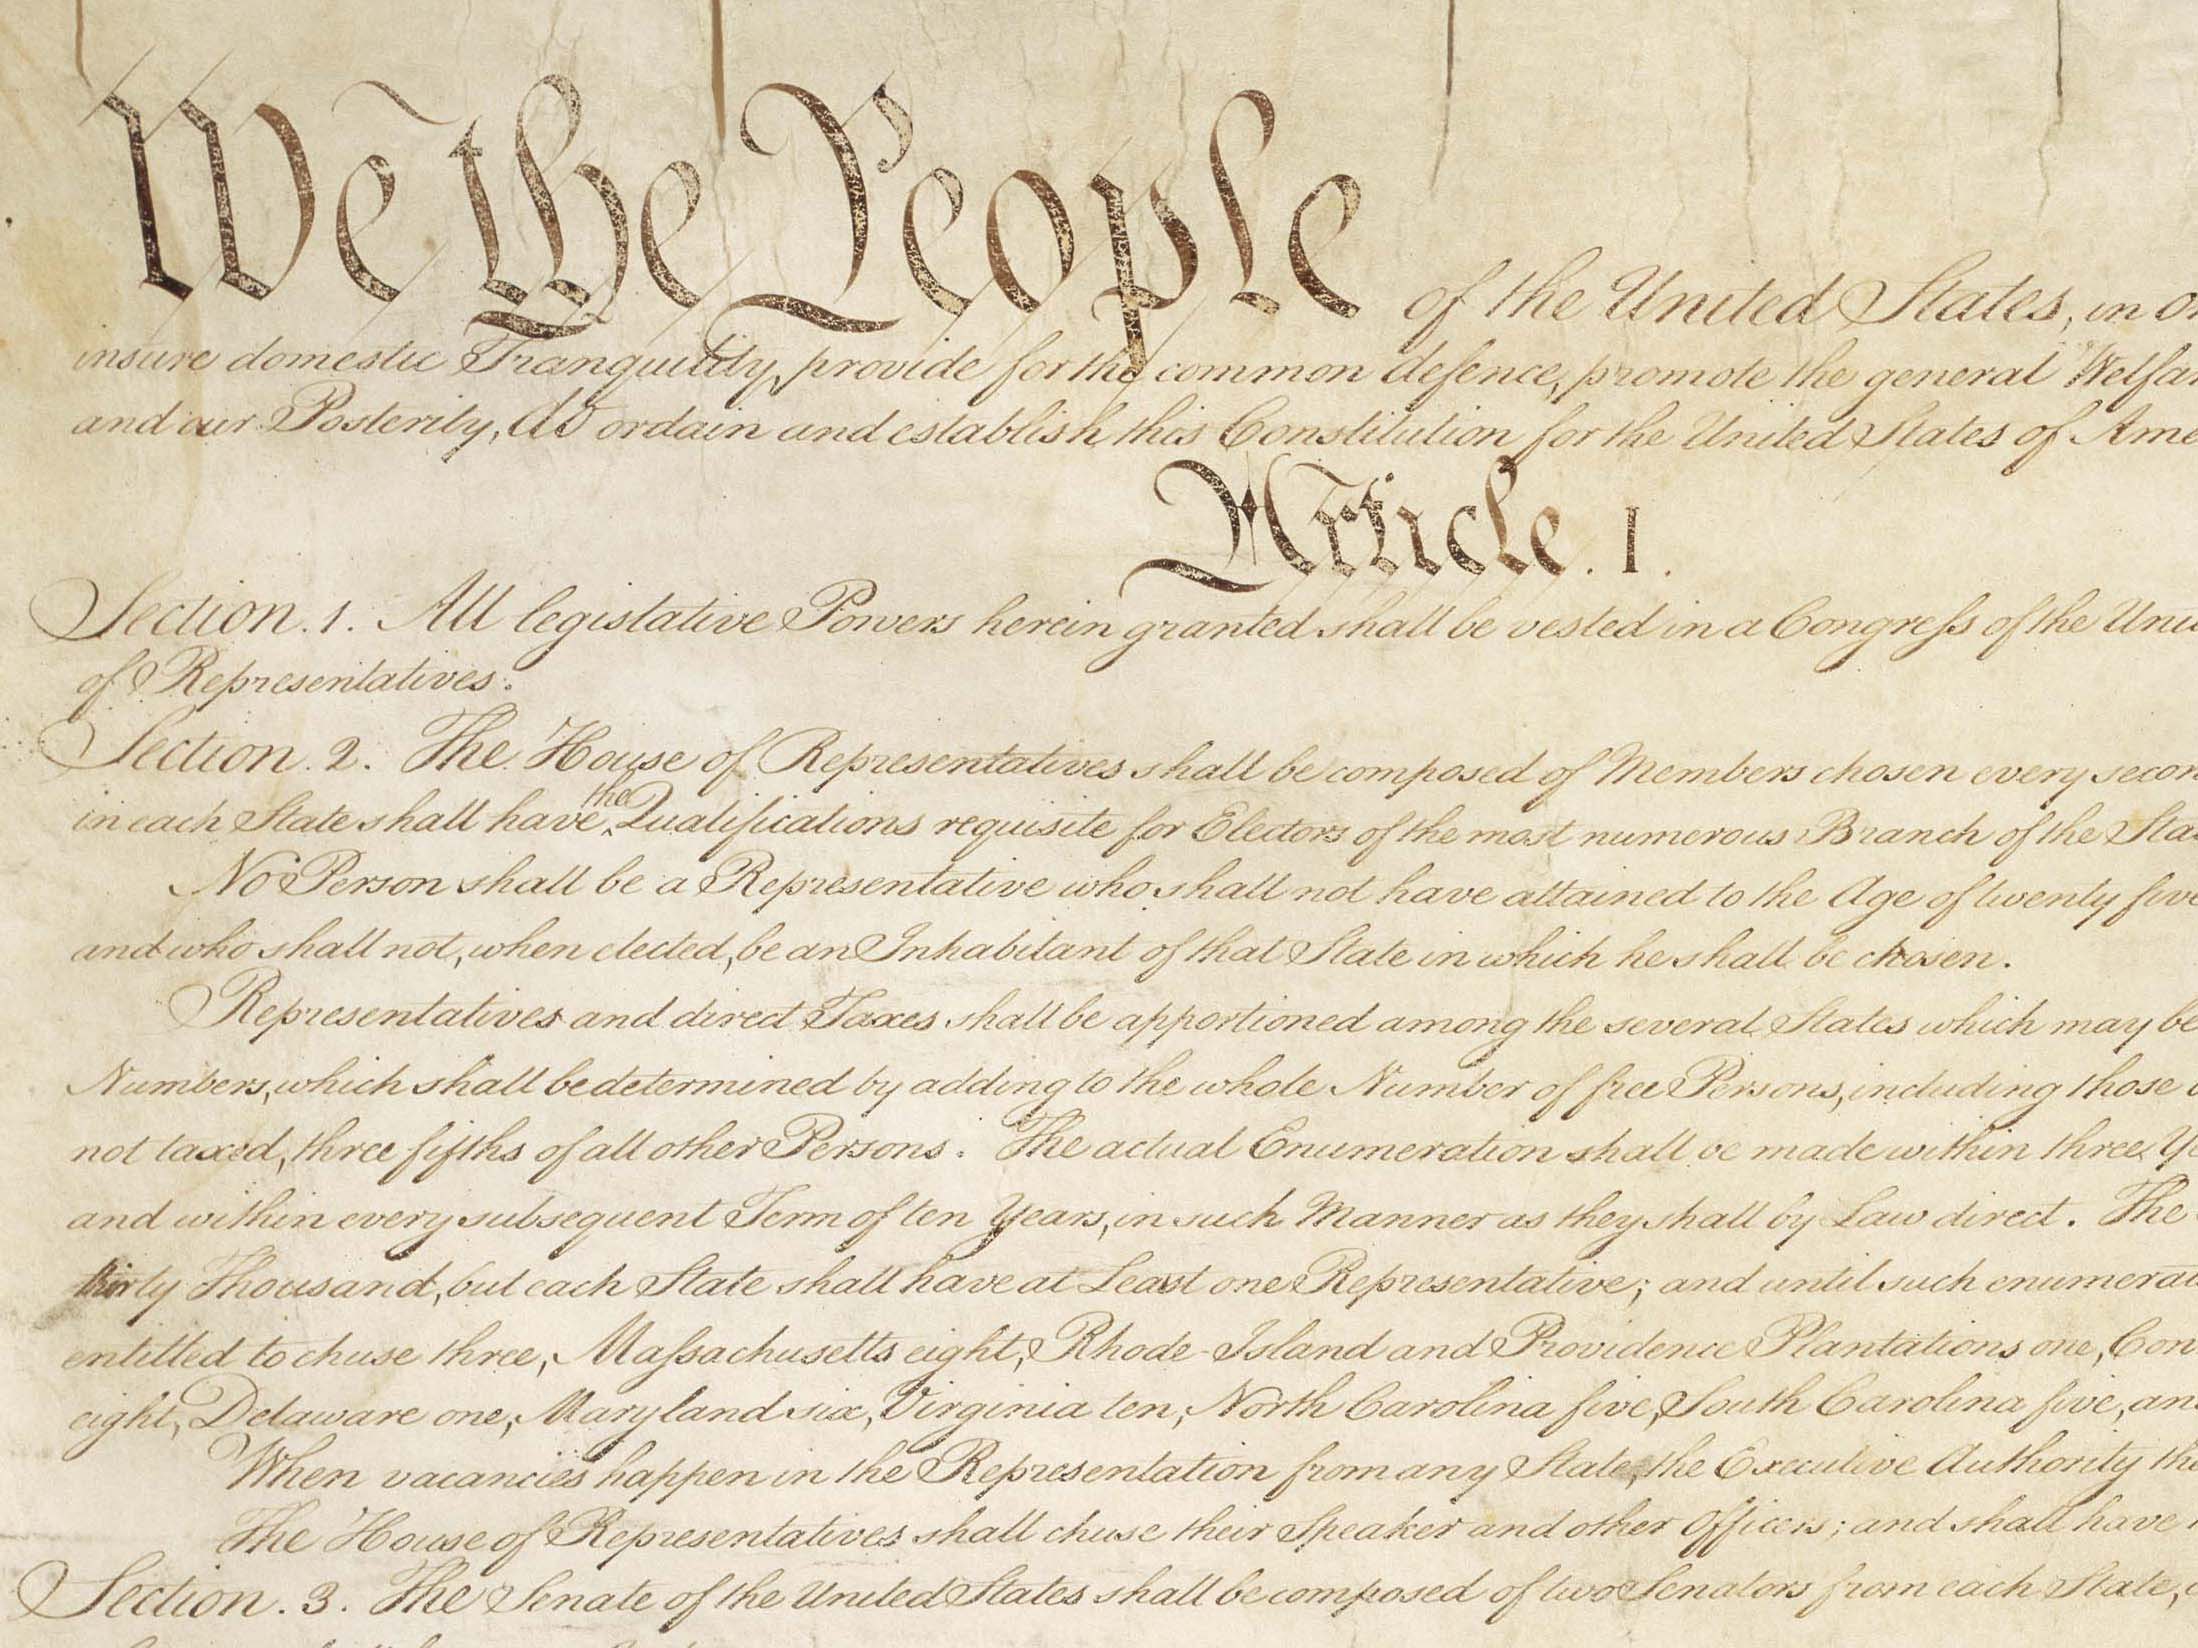 We the People of the United States, in Or
insure domestic Tranquility, provide for the common defence, promote the general Welfar
and our Posterity, do ordain and establish this Constitution for the United States of Ame
Article. I.
Section. 1. All legislative Powers herein granted shall be vested in a Congress of the Uni
of Representatives.
Section. 2. The House of Representatives shall be composed of Members chosen every secon
the
in each State shall have Qualifications requisite for Electors of the most numerous Branch of the Sta
No Person shall be a Representative who shall not have attained to the Age of twenty five
and who shall not, when elected, be an Inhabitant of that State in which he shall be chosen.
Representatives and direct Taxes shall be apportioned among the several States which may be
Numbers, which shall be determined by adding to the whole Number of free Persons, including those
not taxed, three fifths of all other Persons. The actual Enumeration shall be made within three Ye
and within every subsequent Term of ten Years, in such Manner as they shall by Law direct. The
thirty Thousand, but each State shall have at Least one Representative; and until such enumerat
entitled to chuse three, Massachusetts eight, Rhode-Island and Providence Plantations one, Con
eight, Delaware one, Maryland six, Virginia ten, North Carolina five, South Carolina five, an
When vacancies happen in the Representation from any State, the Executive Authority the
The House of Representatives shall chuse their Speaker and other Officers; and shall have
Section. 3. The Senate of the United States shall be composed of two Senators from each State,